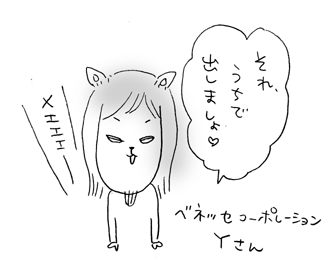 それ、
うちで
出しましょ♡
メェェェ
ベネッセコーポレーション
Yさん